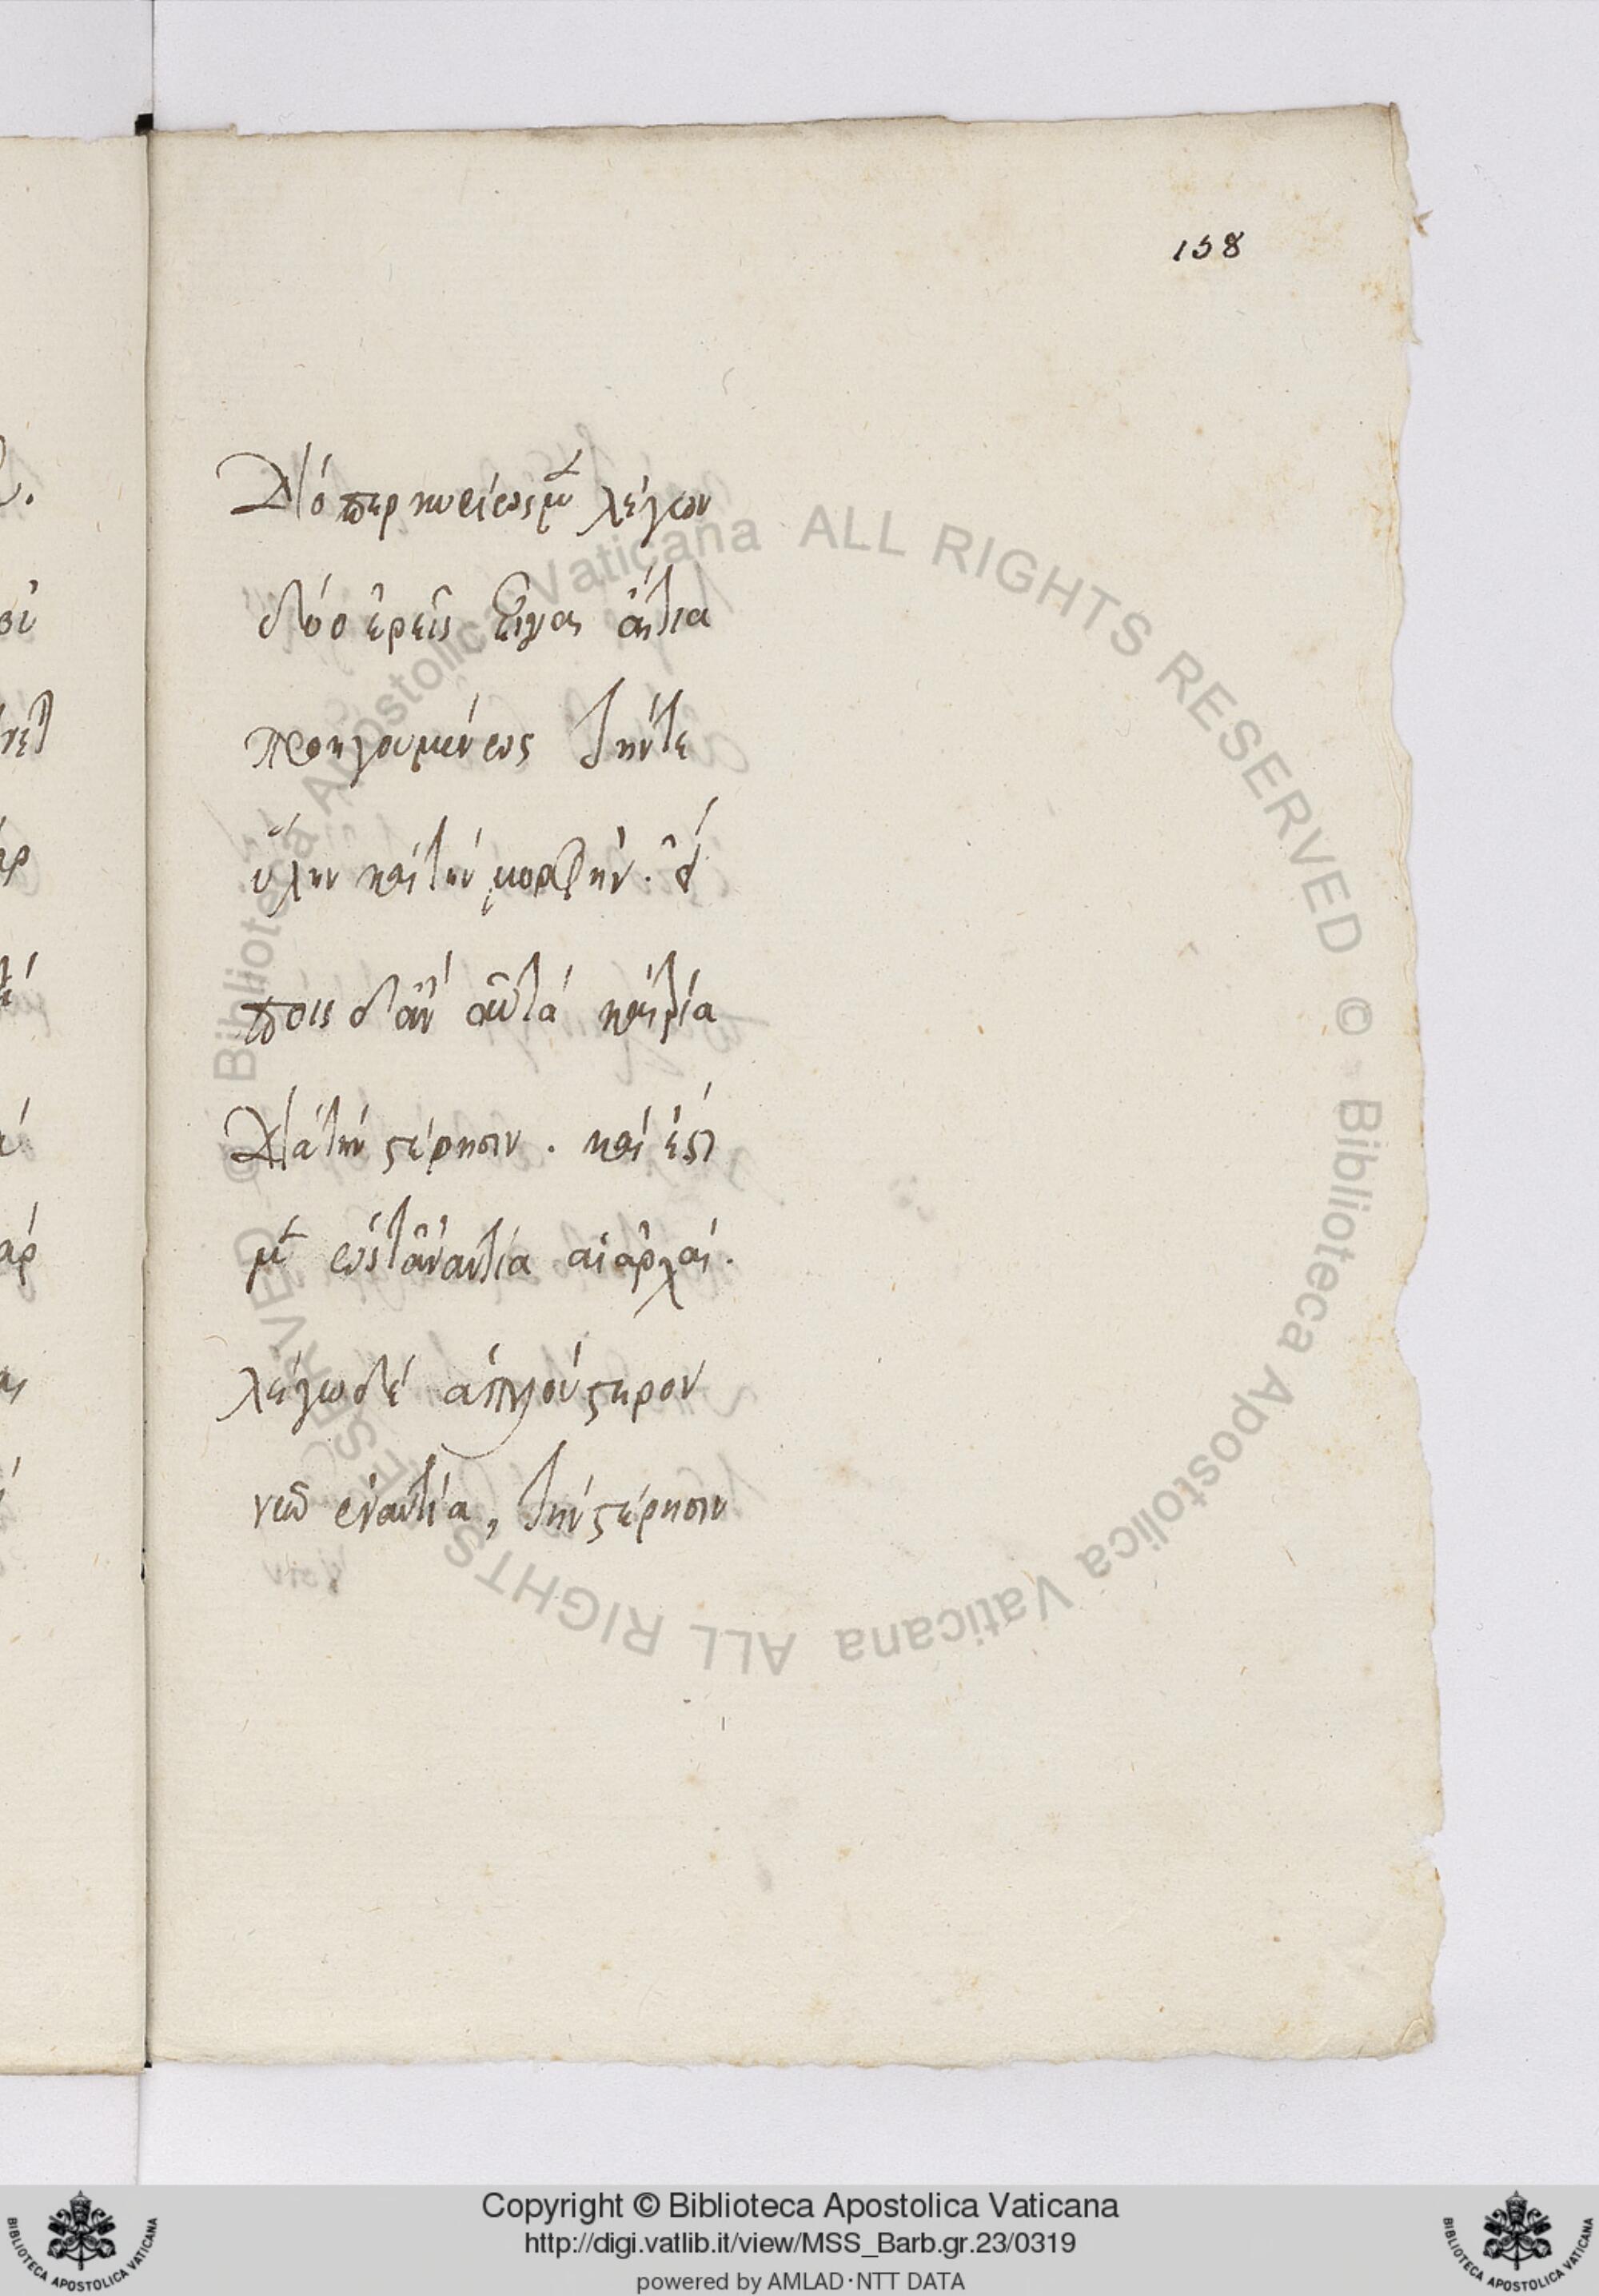 158
Διόπερ κυρίως μὲν λέγων
δύο ἐρεῖς εἶναι αἴτια
προηγουμένως τήντε
ὕλην καὶ τὴν μορφήν.
δ' ἂν αὐτὰ καὶ τρία
διὰ τὴν στέρησιν. καὶ ἔστι
μὲν ὡς τἀναντία αἱ ἀρχαί.
λέγω δὲ ἁπλούστερον
νῦν ἐναντία, τὴν στέρησιν
© Biblioteca Apostolica Vaticana ALL RIGHTS RESERVED © Biblioteca Apostolica Vaticana ALL RIGHTS RESERVED
Copyright © Biblioteca Apostolica Vaticana
http://digi.vatlib.it/view/MSS_Barb.gr.23/0319
powered by AMLAD·NTT DATA
BIBLIOTECA APOSTOLICA VATICANA
BIBLIOTECA APOSTOLICA VATICANA